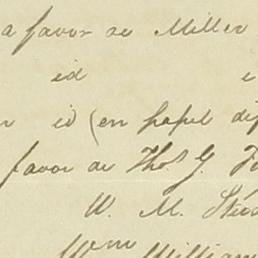 a favor de Miller
id
id (en papel
favor de Thos. G.
W. M.
Wm William